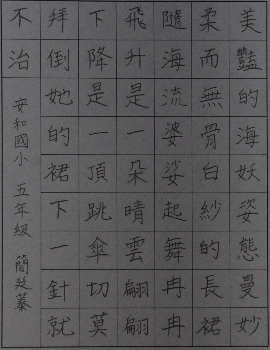 美豔的海妖姿態曼妙
柔而無骨白紗的長裙
隨海流婆娑起舞冉冉
飛升是一朵晴雲翩翩
下降是一頂跳傘切莫
拜倒她的裙下一針就
不治
安和國小 五年級 簡廷蓁